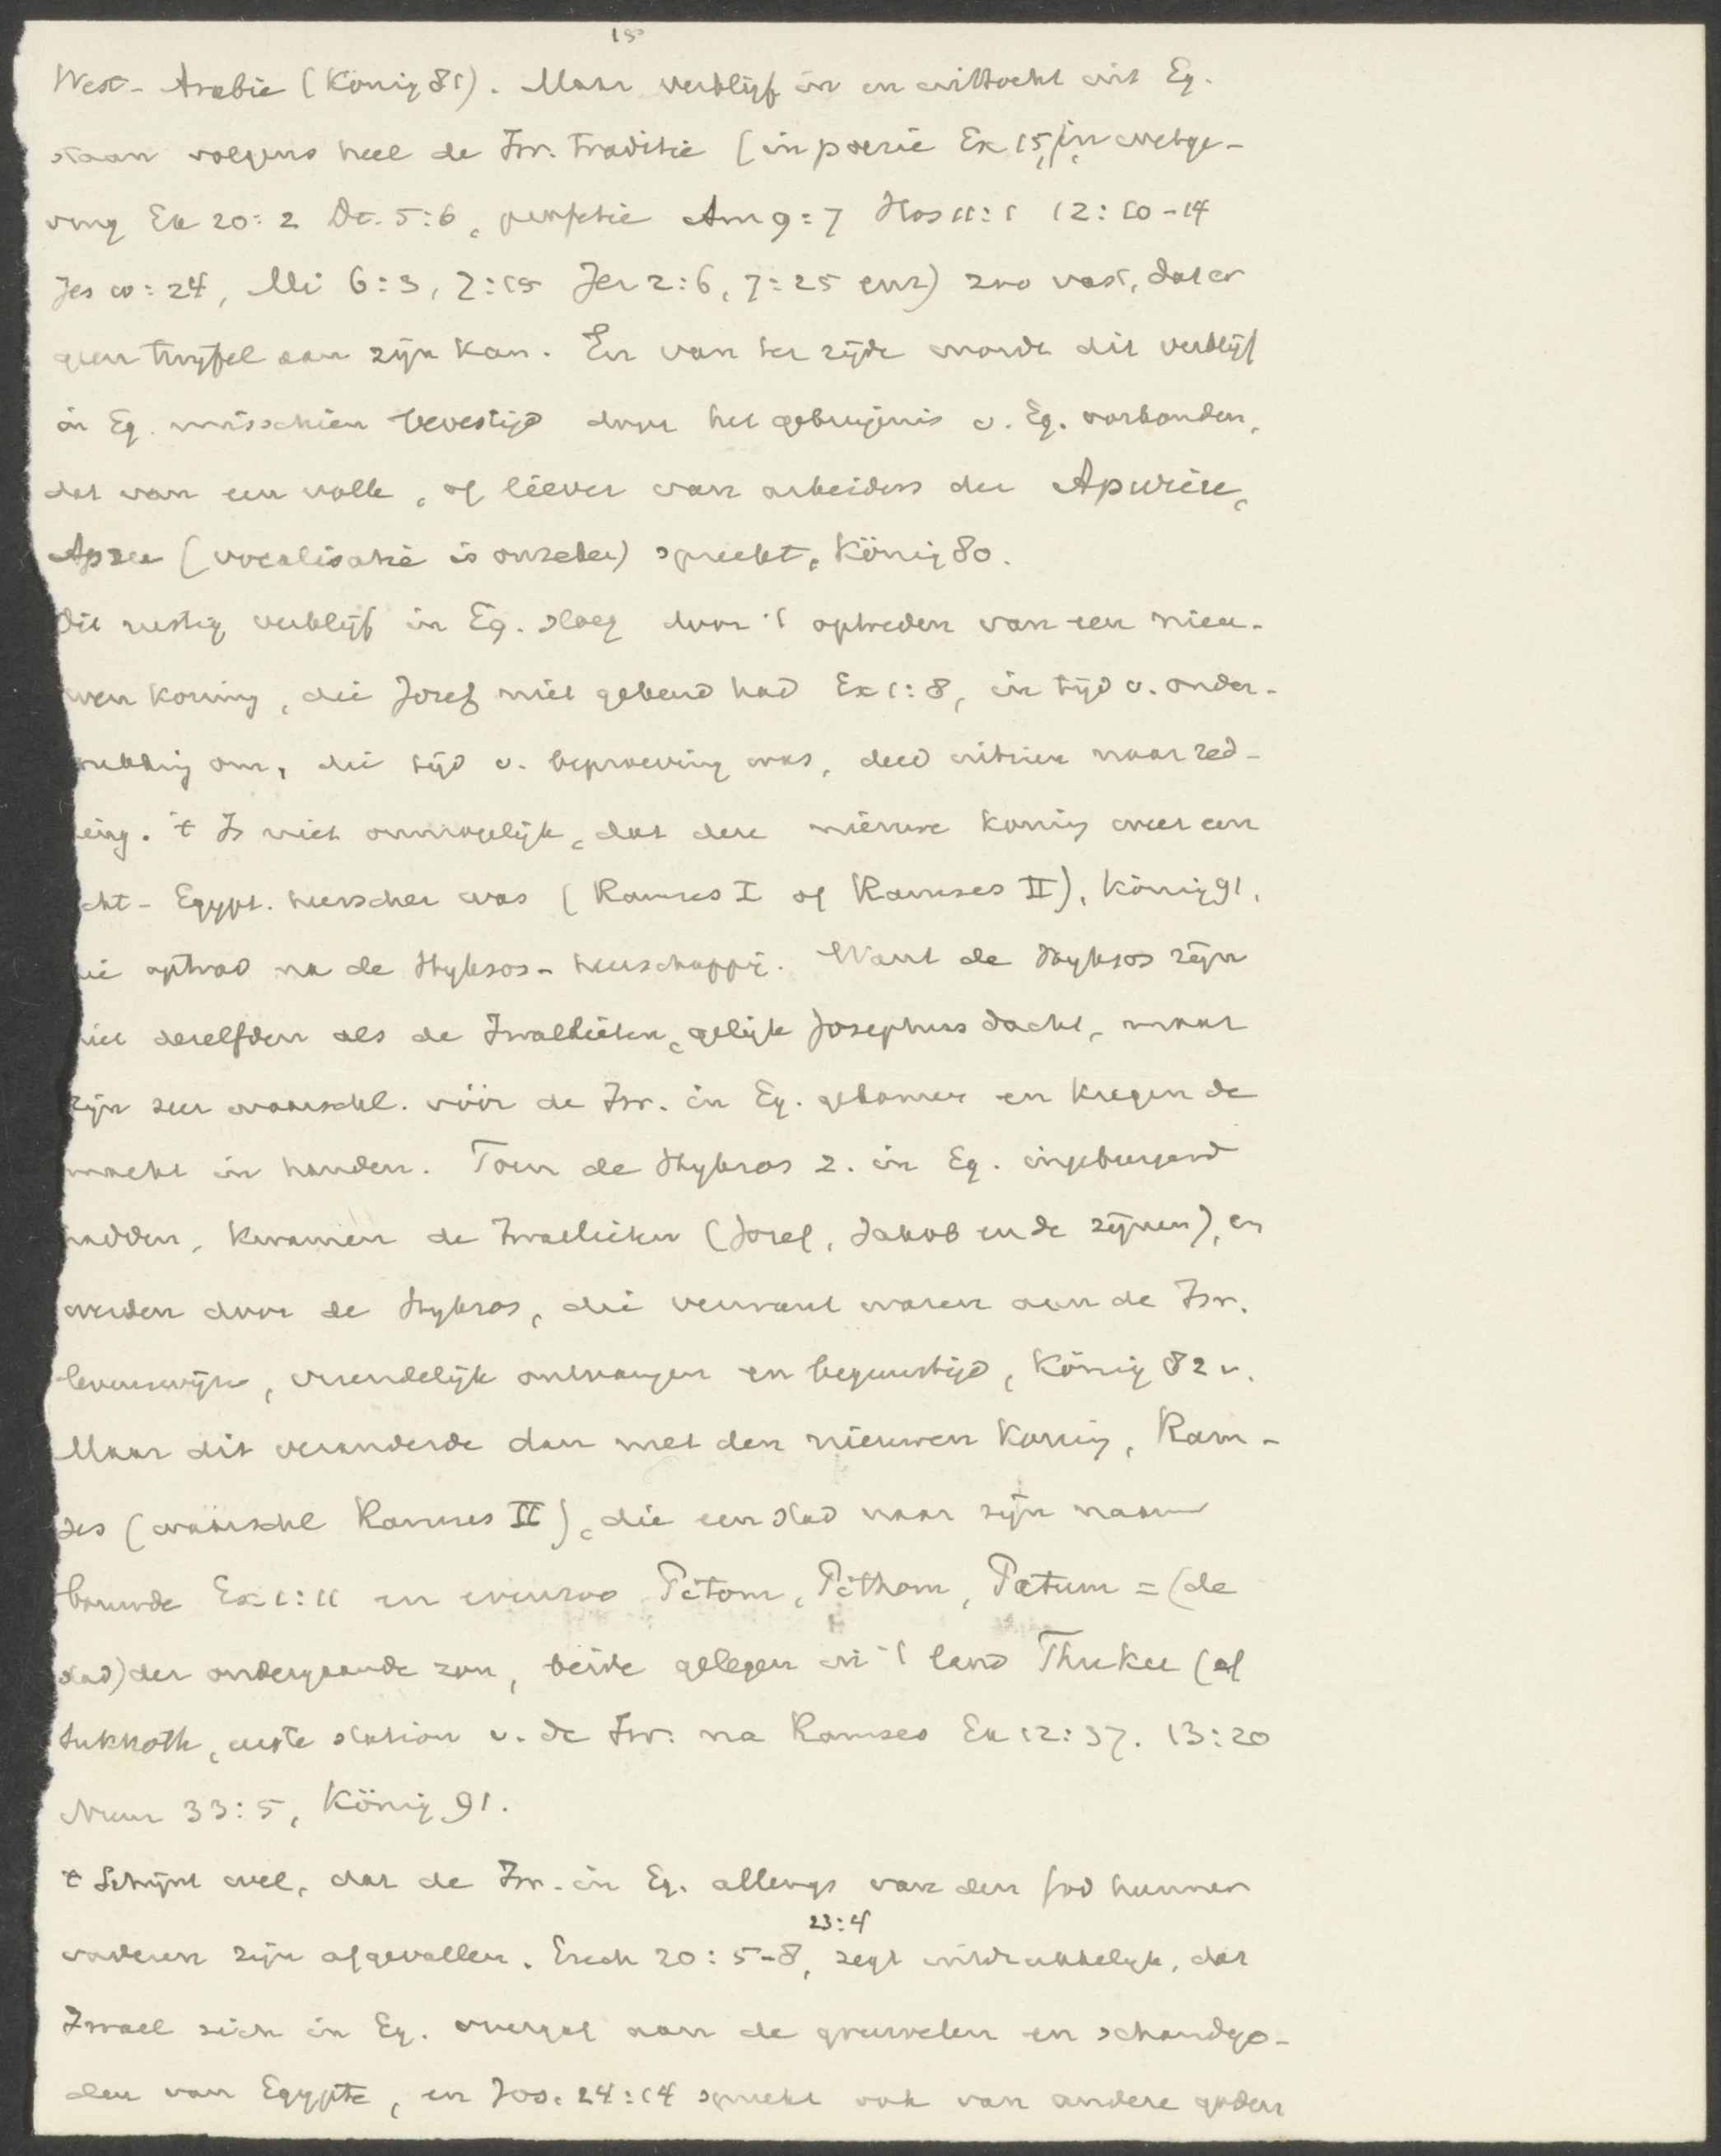 15
West-Arabië (König 81). Maar verblijf in en uittocht uit Eg.
staan volgens heel de Isr. traditie (in poezie Ex 15, in wetge-
ving Ex 20:2 Dt. 5:6, profetie Am 9:7 Hos 11:1 12:10-14
Jes 10:24, Mi 6:3, 7:15 Jer 2:6, 7:25 enz) zoo vast, dat er
geen twijfel aan zijn kan. En van ter zijde wordt dit verblijf
in Eg. misschien bevestigd door het getuigenis v. Eg. oorkonden,
dat van een volk, of liever van arbeiders der Apuriu,
Apriu (vocalisatie is onzeker) spreekt, König 80.
Dit rustig verblijf in Eg. sloeg door 't optreden van een nieu-
wen koning, die Jozef niet gekend had Ex 1:8, in tijd v. onder-
rukking om, die tijd v. beproeving was, deed uitzien naar red-
ding. 't Is niet onmogelijk, dat deze nieuwe koning weer een
cht-Egypt. heerscher was (Ramses I of Ramses II), König 91,
die optrad na de Hyksos-heerschappij. Want de Hyksos zijn
niet dezelfden als de Israelieten, gelijk Josephus dacht, maar
zijn zeer waarschl. vóór de Isr. in Eg. gekomen en kregen de
macht in handen. Toen de Hyksos z. in Eg. ingeburgerd
hadden, kwamen de Israelieten (Jozef, Jakob en de zijnen), en
werden door de Hyksos, die verwant waren aan de Isr.
levenswijze, vriendelijk ontvangen en begunstigd, König 82 v.
Maar dit veranderde dan met den nieuwen koning, Ram-
ses (waarschl Ramses II), die een stad naar zijn naam
bouwde Ex 1:11 en evenzo Pitom, Pithom, Patum = (de
stad) der ondergaande zon, beide gelegen in 't land Thuku (of
Sukkoth, eerste station v. de Isr. na Ramses Ex 12:37. 13:20
Num 33:5, König 91.
't Schijnt wel, dat de Isr. in Eg. allengs van den God hunner
vaderen zijn afgevallen. Ezech 20:5-8, 23:4 zegt uitdrukkelijk, dat
Israel zich in Eg. overgaf aan de gruwelen en schandgo-
den van Egypte, en Joz. 24:14 spreekt ook van andere goden